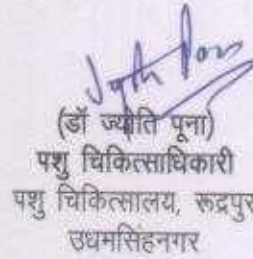 (डॉ ज्योति पूना)
पशु चिकित्साधिकारी
पशु चिकित्सालय, रूद्रपुर
उधमसिहनगर